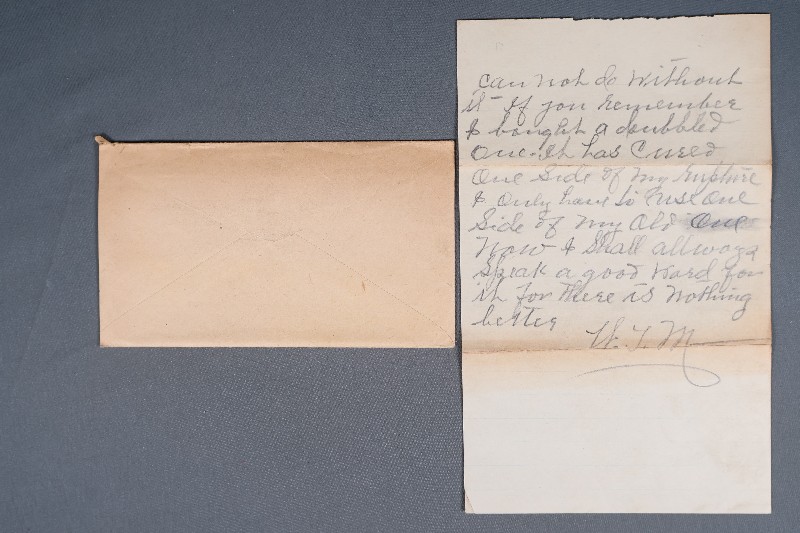 can not do without
it - If you remember
I bought a doubbled
One. It has Cured
One Side of my Rupture
& Only have to use One
Side of my Old One
Now & Shall allways
Speak a good word for
it for there is Nothing
better
W. T. M